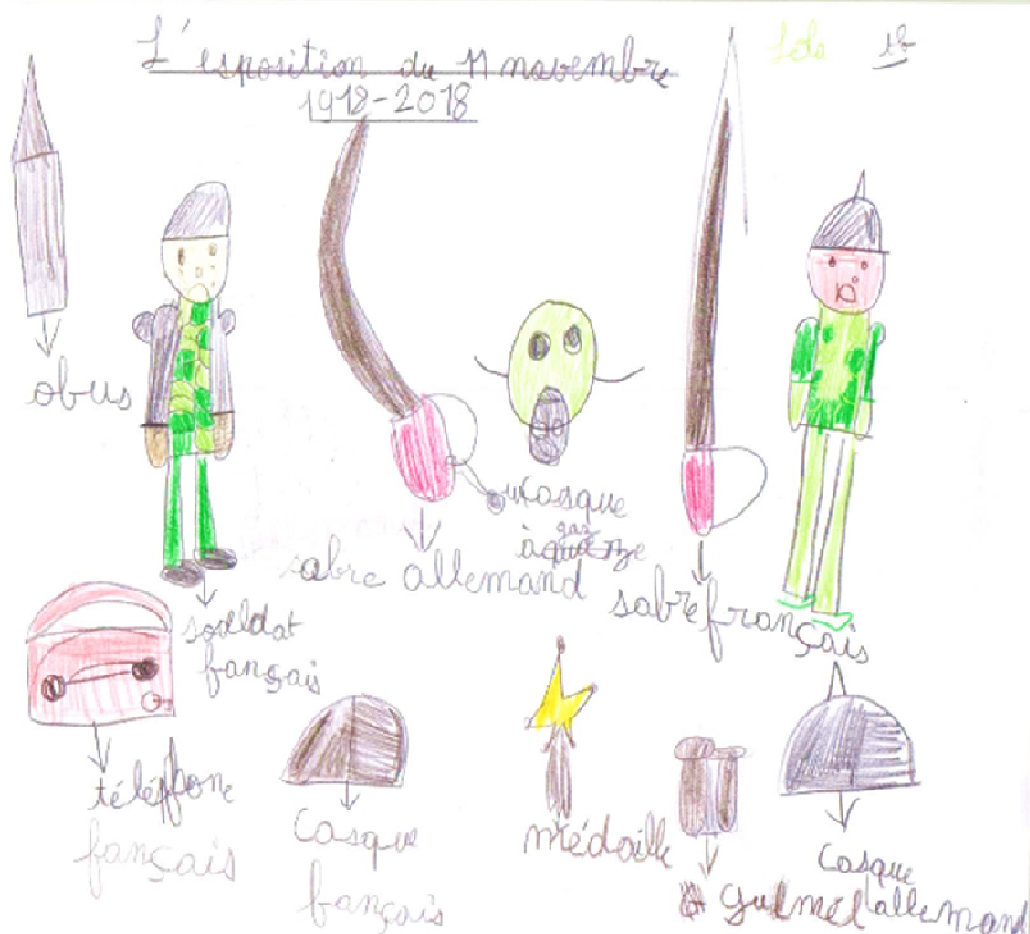 L'esposition du 11 novembre
1918-2018
obus
masque
à gaz
sabre allemand
sabre français
soeldat
fançais
téléffone
fançais
Casque
fançais
médaille
gulmel
Casque
allemand